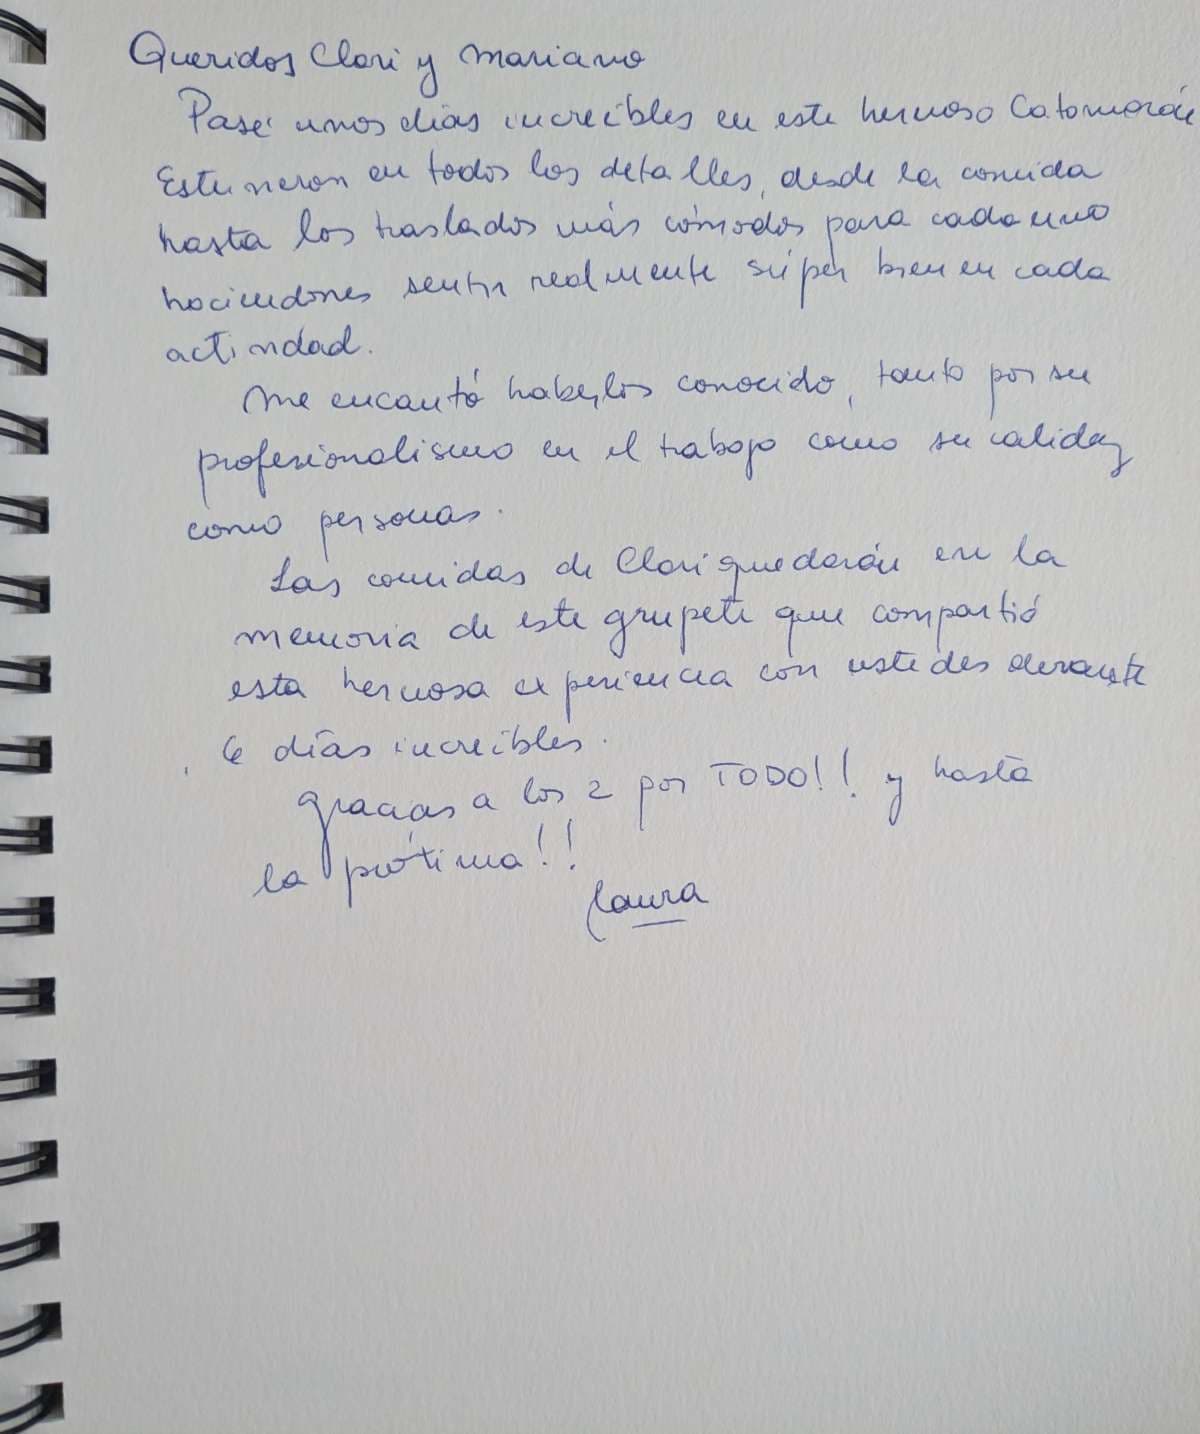 Queridos Clori y Mariano
Pasé unos días increíbles en este hermoso Catamarán
Estuvieron en todos los detalles, desde la comida
hasta los traslados más cómodos para cada uno
haciendonos sentir realmente súper bien en cada
actividad.
Me encantó haberlos conocido, tanto por su
profesionalismo en el trabajo como su calidez
como personas.
Las comidas de Clori quedarán en la
memoria de este grupete que compartió
esta hermosa experiencia con ustedes durante
6 días increíbles.
gracias a los 2 por TODO!! y hasta
la próxima!!
Laura